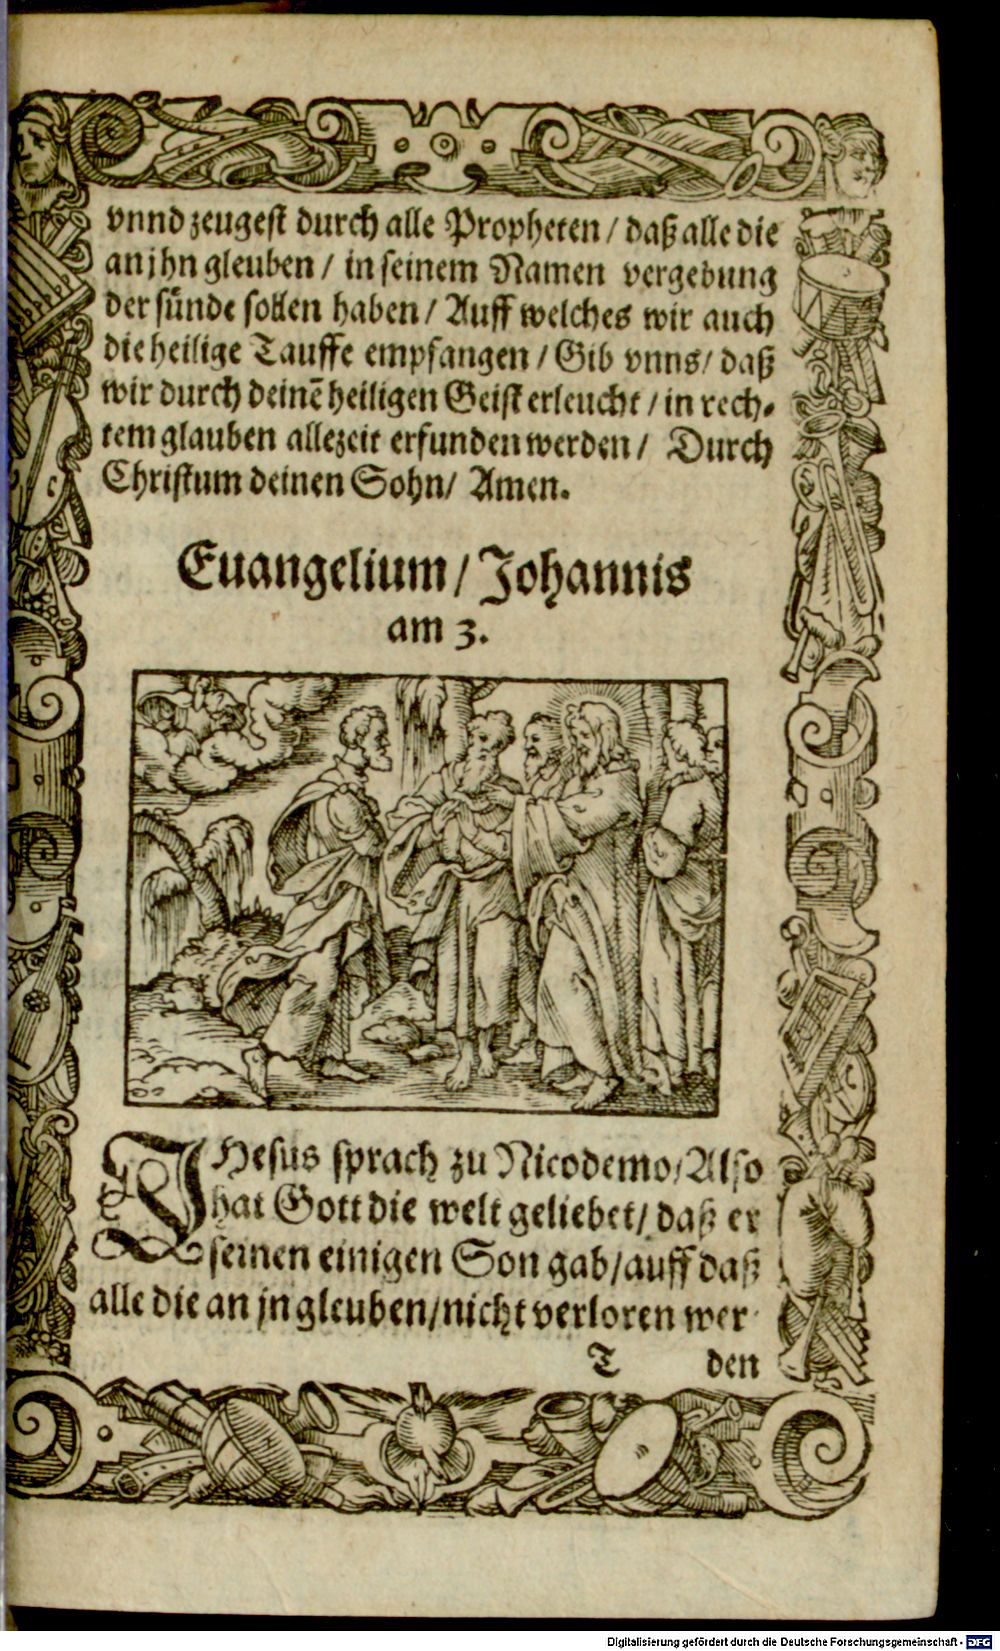 vnnd zeugest durch alle Propheten / daß alle die
an jhn gleuben / in seinem Namen vergebung
der sünde sollen haben / Auff welches wir auch
die heilige Tauffe empfangen / Gib vnns / daß
wir durch deinē heiligen Geist erleucht / in rech-
tem glauben allezeit erfunden werden / Durch
Christum deinen Sohn / Amen.
Euangelium / Johannis
am 3.
JHesus sprach zu Nicodemo / Also
hat Gott die welt geliebet / daß er
seinen einigen Son gab / auff daß
alle die an jn gleuben / nicht verloren wer-
T den
Digitalisierung gefördert durch die Deutsche Forschungsgemeinschaft - DFG